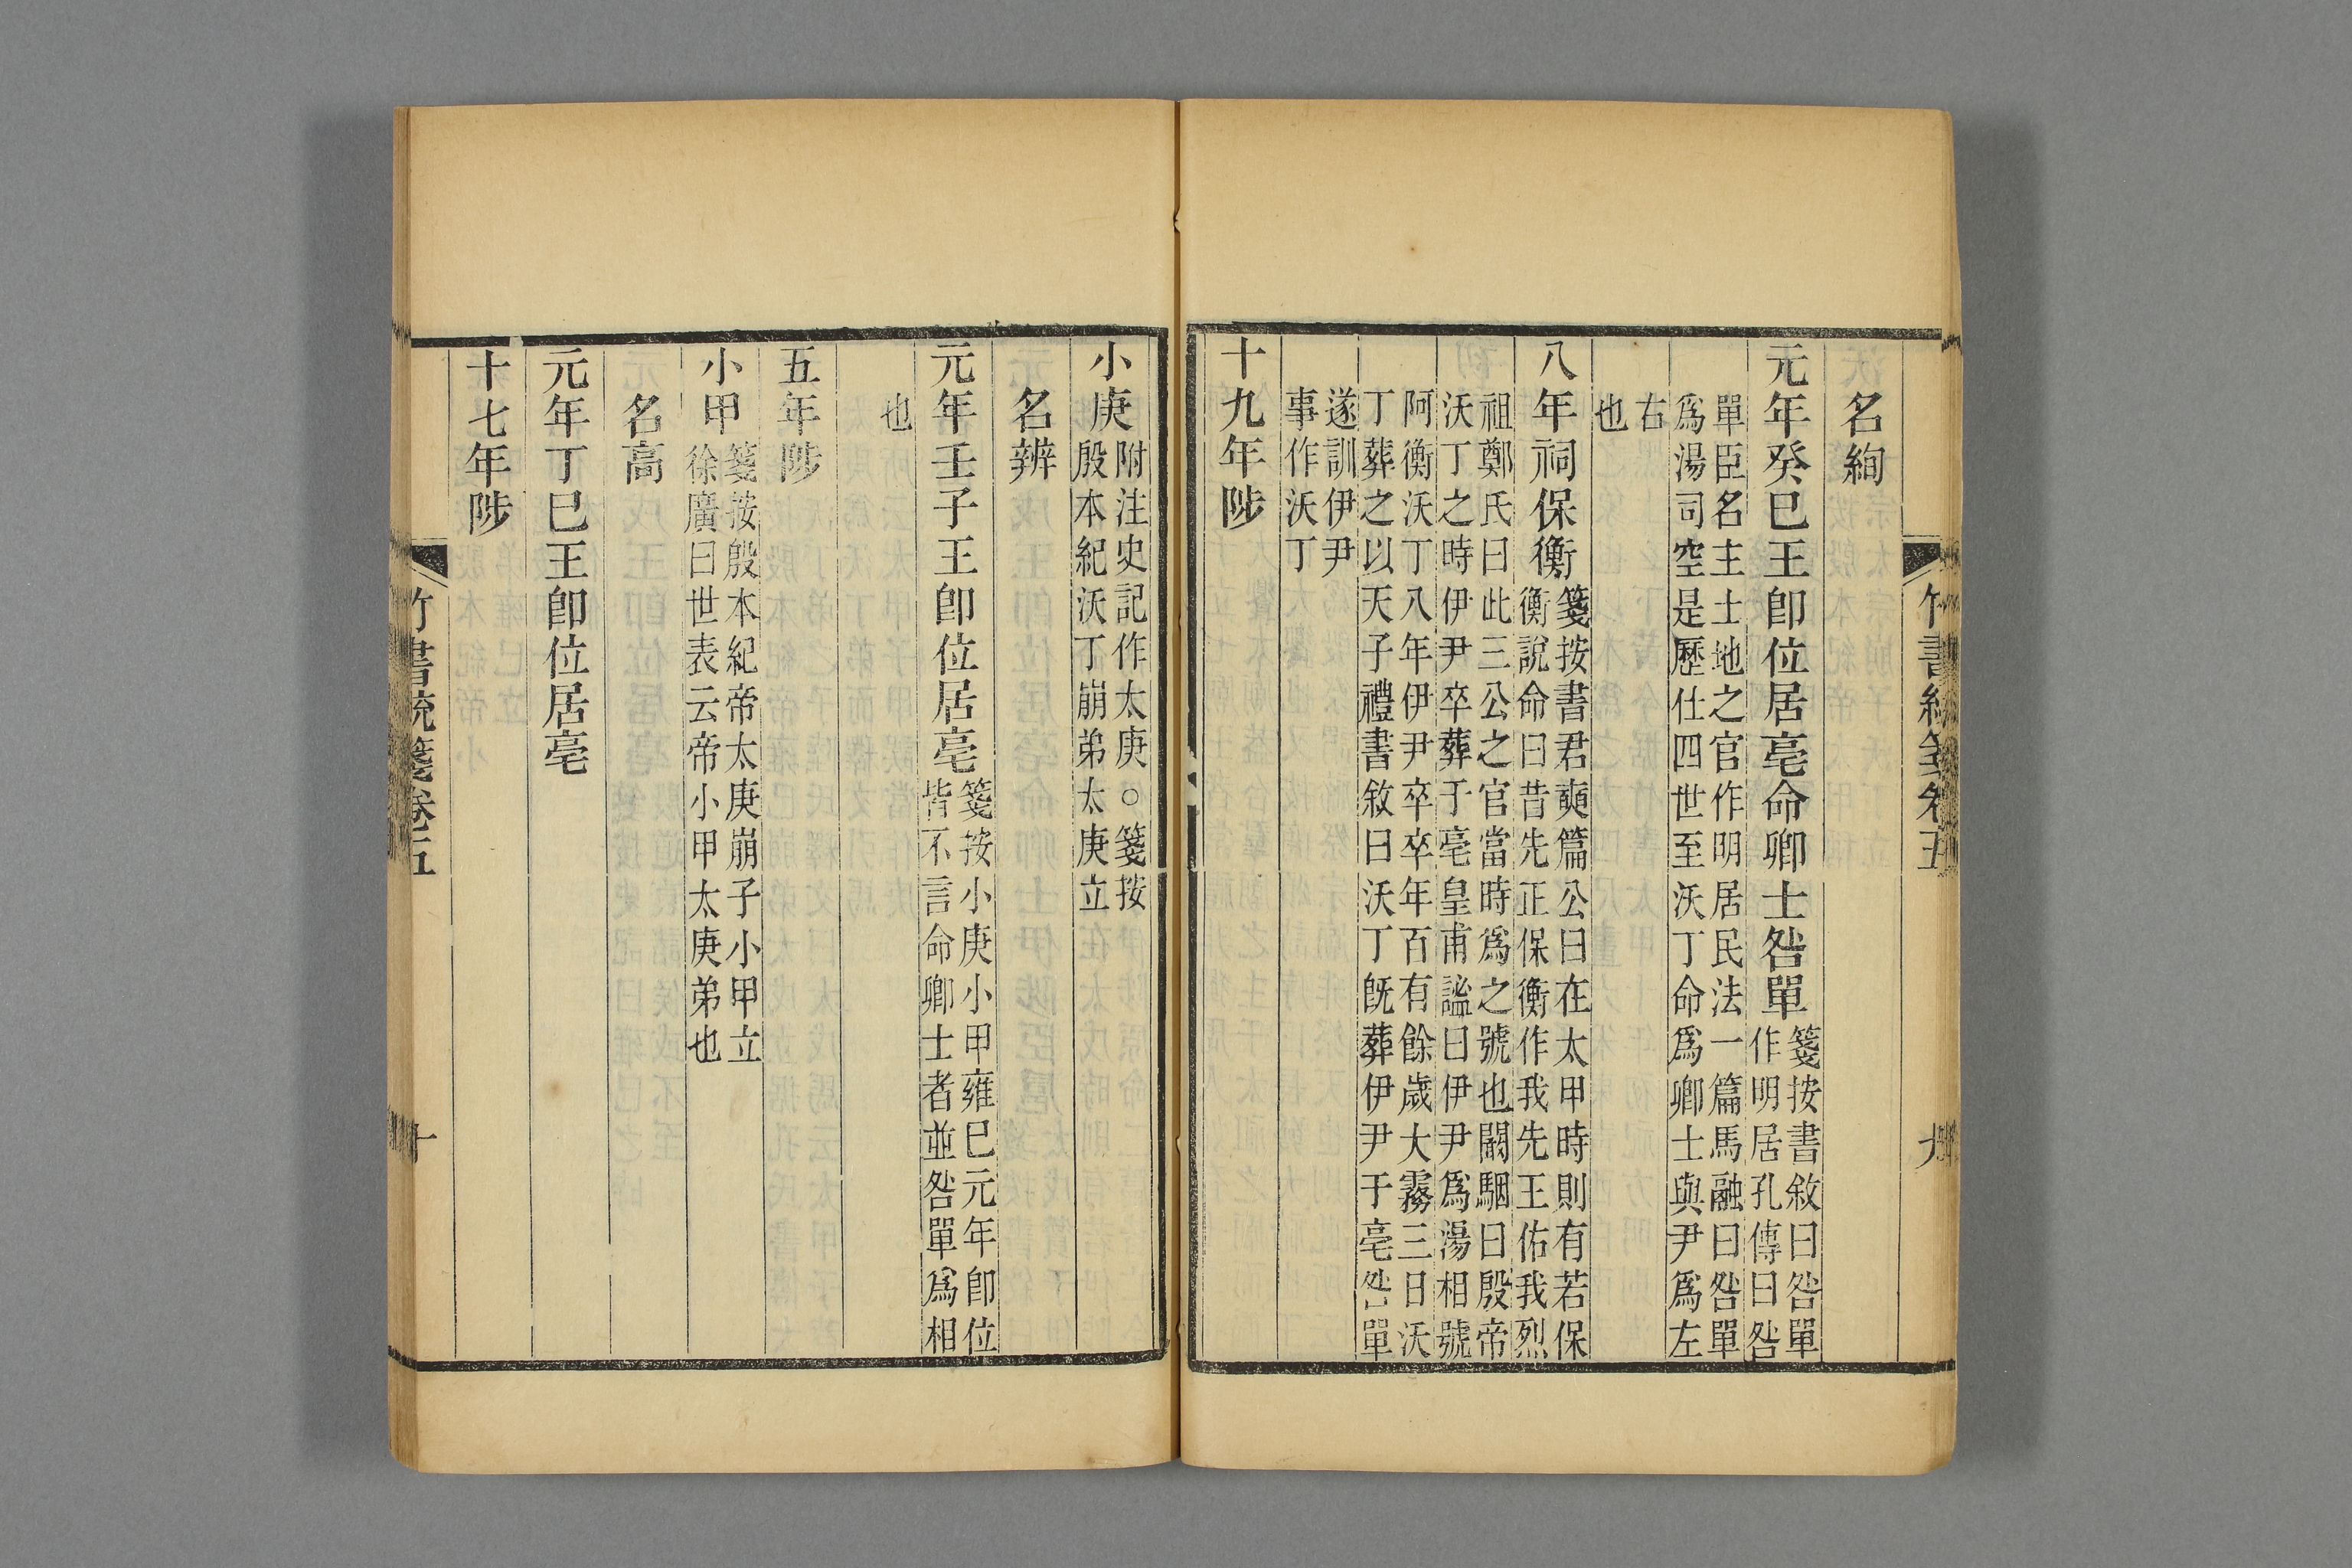 名絢
元年癸巳王卽位居亳命卿士咎單箋按書敘曰咎單
作明居孔傳曰咎
單臣名主土地之官作明居民法一篇馬融曰咎單
爲湯司空是歷仕四世至沃丁命爲卿士與尹爲左
右
也
八年祠保衡箋按書君奭篇公曰在太甲時則有若保
衡說命曰昔先正保衡作我先王佑我烈
祖鄭氏曰此三公之官當時爲之號也闞駰曰殷帝
沃丁之時伊尹卒葬于亳皇甫謐曰伊尹爲湯相號
阿衡沃丁八年伊尹卒卒年百有餘歲大霧三日沃
丁葬之以天子禮書敘曰沃丁旣葬伊尹于亳咎單
遂訓伊尹
事作沃丁
十九年陟
小庚附注史記作太庚○箋按
殷本紀沃丁崩弟太庚立
名辨
元年壬子王卽位居亳箋按小庚小甲雍巳元年卽位
皆不言命卿士者並咎單爲相
也
五年陟
小甲箋按殷本紀帝太庚崩子小甲立
徐廣曰世表云帝小甲太庚弟也
名高
元年丁巳王卽位居亳
十七年陟
竹書統箋卷五
十